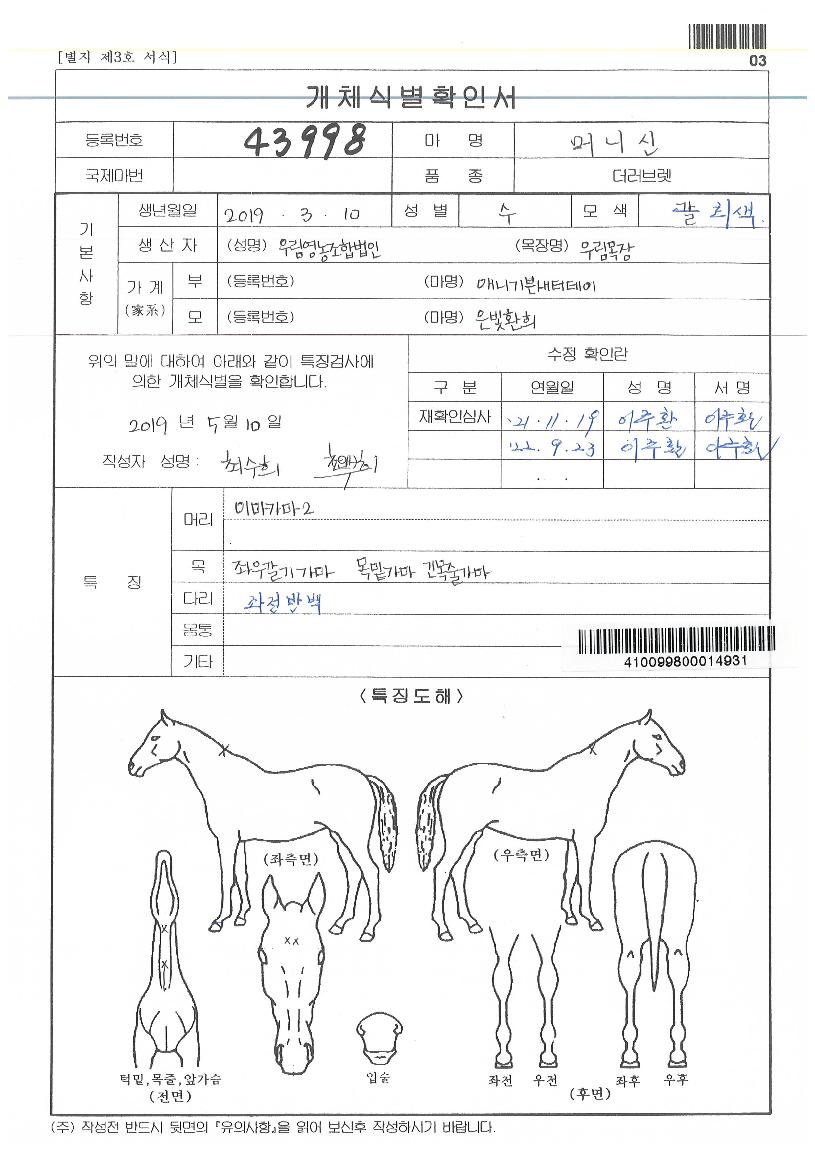 03
[별지 제3호 서식]
개체식별확인서
등록번호 43998 마 명 머니신
국제마번 품 종 더러브렛
기본사항
생년월일 2019 . 3 . 10 성 별 수 모 색 갈 회색.
생 산 자 (성명) 우림영농조합법인 (목장명) 우림목장
가 계 (家系) 부 (등록번호) (마명) 매니기분내터데이
모 (등록번호) (마명) 은빛환희
위의 말에 대하여 아래와 같이 특징검사에
의한 개체식별을 확인합니다.
2019 년 5월 10 일
작성자 성명 : 최수희
수정 확인란
구 분 연월일 성 명 서 명
재확인심사 '21 . 11 . 19 이주환 이주환
'22 . 9 . 23 이주환 이주환
. .
특 징
머리 이마가마2
목 좌우갈기가마 목밑가마 긴목줄가마
다리 좌전반백
몸통
기타
410099800014931
<특징도해>
(좌측면) (우측면)
턱밑,목줄,앞가슴
(전면)
입술
좌전 우전 좌후 우후
(후면)
(주) 작성전 반드시 뒷면의 『유의사항』을 읽어 보신후 작성하시기 바랍니다.